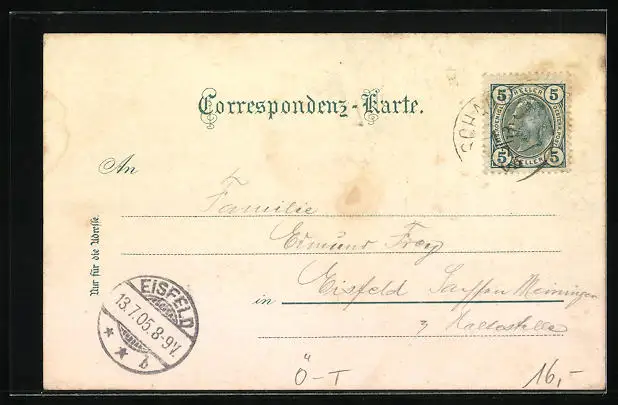 Correspondenz-Karte.
5 HELLER 5
5 HELLER 5
SCHA
An
Familie
Edmund Frey
Nur für die Adresse.
in Eisfeld Sachsen Meiningen
Haltestelle
EISFELD
13.7.05.8-9V.
* * b
Ö-T
16,-